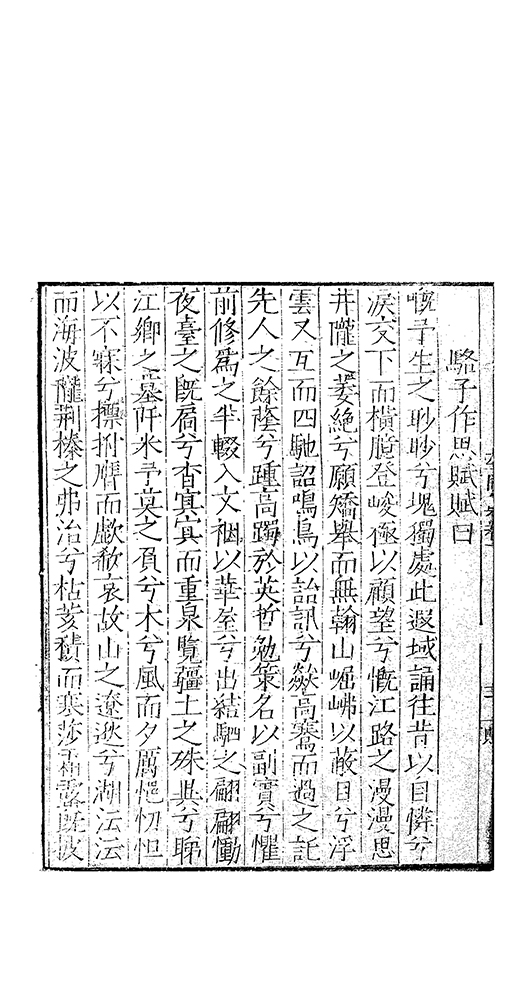 駱子作思賦賦曰
嘅予生之眇眇兮塊獨處此遐域誦往昔以目憐兮
淚交下而橫臆登峻極以顧望兮慨江路之漫漫思
井隴之萎絕兮願矯舉而無翰山崛岪以蔽目兮浮
雲又互而四馳詔鳴鳥以詒訊兮高騫而過之託
先人之餘蔭兮踵高躅於英哲勉策名以副實兮懼
前修爲之半輟入文裀以華兮出結駟之翩翩慟
夜臺之旣扃兮杳冥冥而重泉覽疆土之殊異兮睇
江鄉之墓阡米予莫之負兮木兮風而夕厲悒忉怛
以不寐兮摽拊膺而歔欷哀故山之遼逖兮湖沄沄
而海波隴荆榛之弗治兮枯荄積而寒莎霜露旣